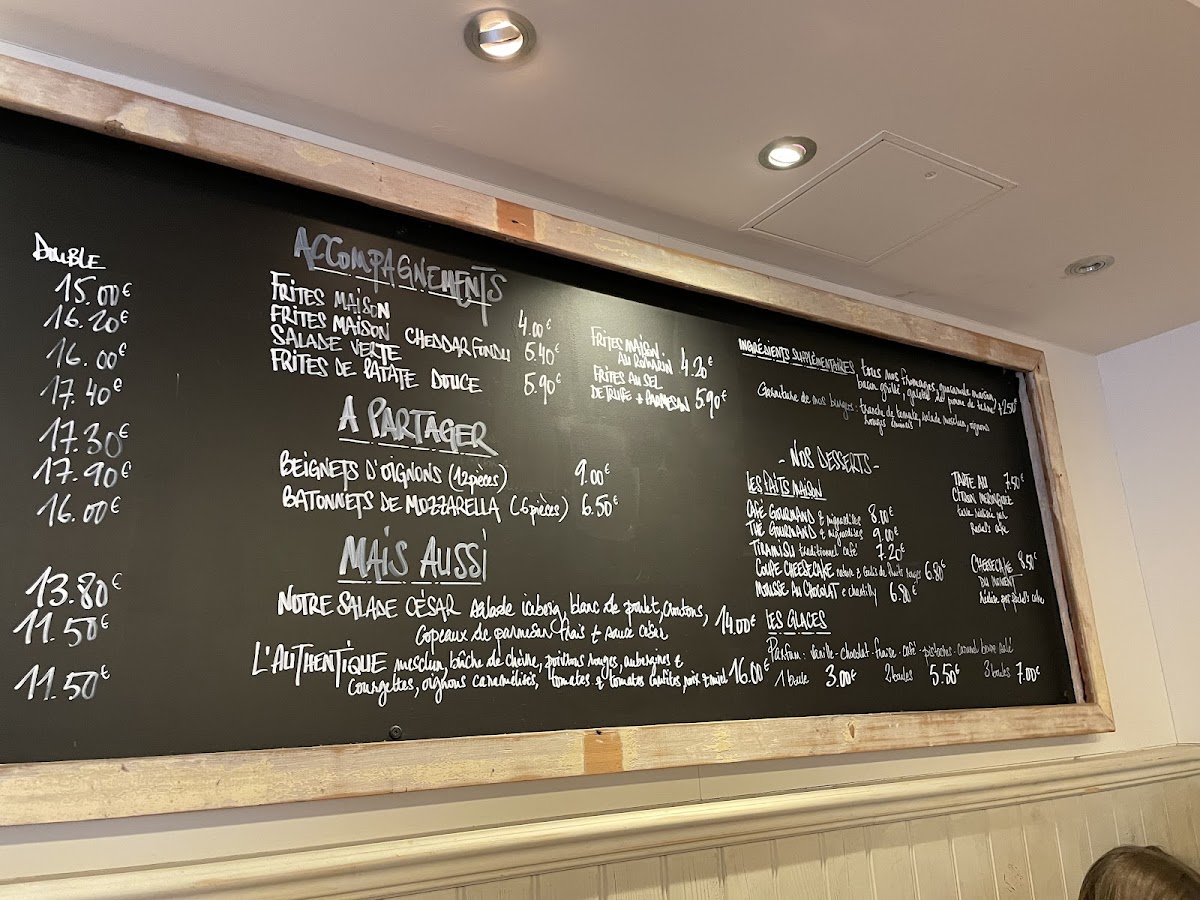 DOUBLE
15.00€
16.20€
16.00€
17.40€
17.30€
17.90€
16.00€
13.80€
11.50€
11.50€
ACCOMPAGNEMENTS
FRITES MAISON 4.00€
FRITES MAISON CHEDDAR FONDU 5.40€
SALADE VERTE
FRITES DE PATATE DOUCE 5.90€
FRITES MAISON
AU ROMARIN 4.20€
FRITES AU SEL
DE TRUFFE + PARMESAN 5.90€
A PARTAGER
BEIGNETS D'OIGNONS (12 pièces) 9.00€
BATONNETS DE MOZZARELLA (6 pièces) 6.50€
MAIS AUSSI
NOTRE SALADE CÉSAR salade iceberg, blanc de poulet, croutons, 14.00€
Copeaux de parmesan frais + sauce césar
L'AUTHENTIQUE mesclun, bûche de chèvre, poivrons rouges, aubergines &
Courgettes, oignons caramélisés, tomates & tomates confites, noix & miel 16.00€
INGRÉDIENTS SUPPLÉMENTAIRES, tous nos fromages, guacamole maison,
bacon grillé, galette de pomme de terre +2.50€
Garniture de nos burgers : tranche de tomate, salade mesclun, oignons
rouges émincés
- NOS DESSERTS -
LES FAITS MAISON
CAFÉ GOURMAND & mignardises 8.00€
THÉ GOURMAND & mignardises 9.00€
TIRAMISU traditionnel café 7.20€
COUPE CHEESECAKE nature & coulis de fruits rouges 6.80€
MOUSSE AU CHOCOLAT & chantilly 6.80€
TARTE AU 7.50€
CITRON MERINGUÉE
tarte réalisée par
Rachel's cake
CHEESECAKE 8.50€
DU MOMENT
Réalisé par Rachel's cake
LES GLACES
Parfum : vanille - chocolat - fraise - café - pistache - caramel beurre salé
1 boule 3.00€ 2 boules 5.50€ 3 boules 7.00€